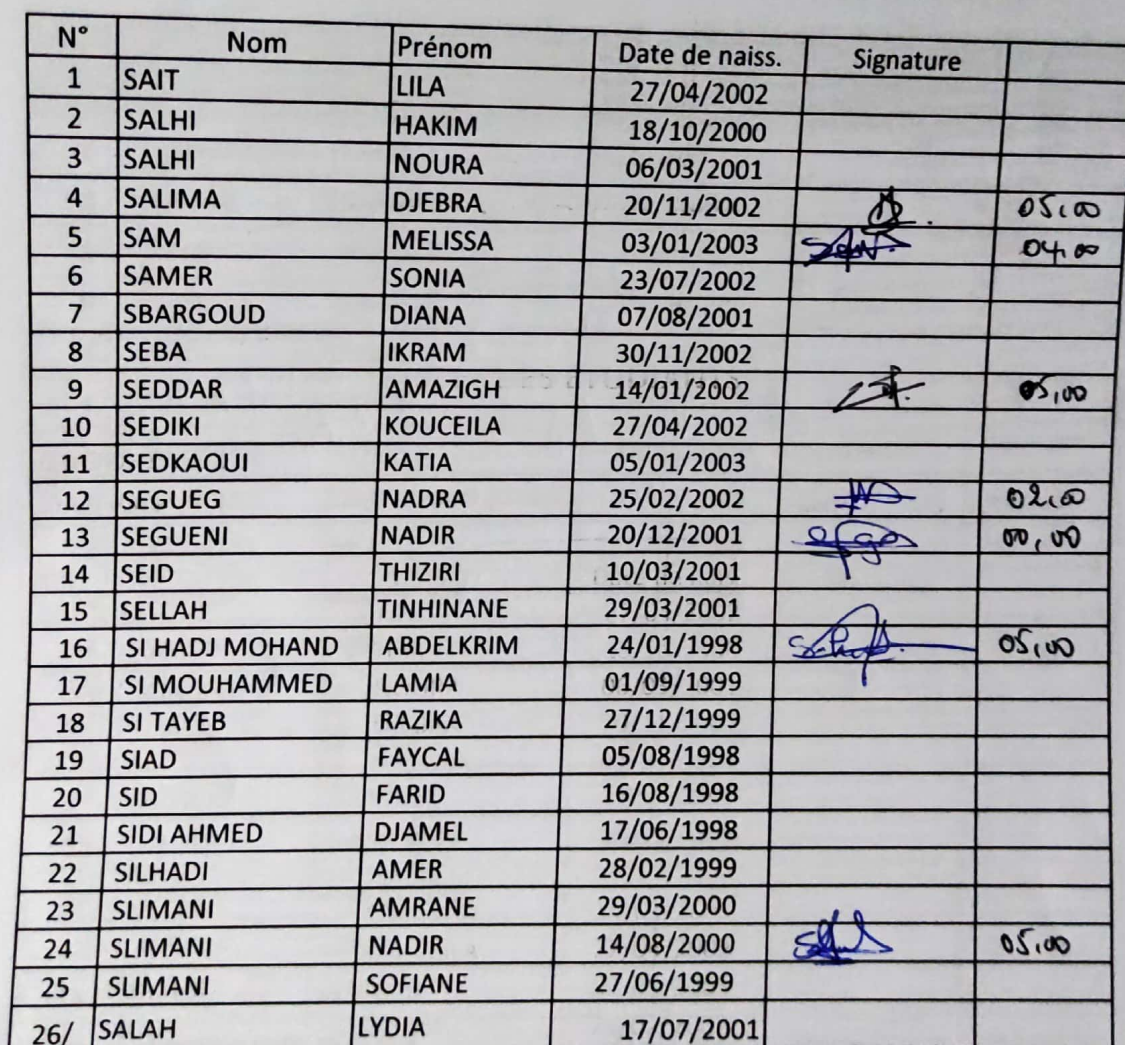 N° Nom Prénom Date de naiss. Signature
1 SAIT LILA 27/04/2002
2 SALHI HAKIM 18/10/2000
3 SALHI NOURA 06/03/2001
4 SALIMA DJEBRA 20/11/2002 05,00
5 SAM MELISSA 03/01/2003 04,00
6 SAMER SONIA 23/07/2002
7 SBARGOUD DIANA 07/08/2001
8 SEBA IKRAM 30/11/2002
9 SEDDAR AMAZIGH 14/01/2002 05,00
10 SEDIKI KOUCEILA 27/04/2002
11 SEDKAOUI KATIA 05/01/2003
12 SEGUEG NADRA 25/02/2002 02,00
13 SEGUENI NADIR 20/12/2001 00,00
14 SEID THIZIRI 10/03/2001
15 SELLAH TINHINANE 29/03/2001
16 SI HADJ MOHAND ABDELKRIM 24/01/1998 05,00
17 SI MOUHAMMED LAMIA 01/09/1999
18 SI TAYEB RAZIKA 27/12/1999
19 SIAD FAYCAL 05/08/1998
20 SID FARID 16/08/1998
21 SIDI AHMED DJAMEL 17/06/1998
22 SILHADI AMER 28/02/1999
23 SLIMANI AMRANE 29/03/2000
24 SLIMANI NADIR 14/08/2000 05,00
25 SLIMANI SOFIANE 27/06/1999
26/ SALAH LYDIA 17/07/2001